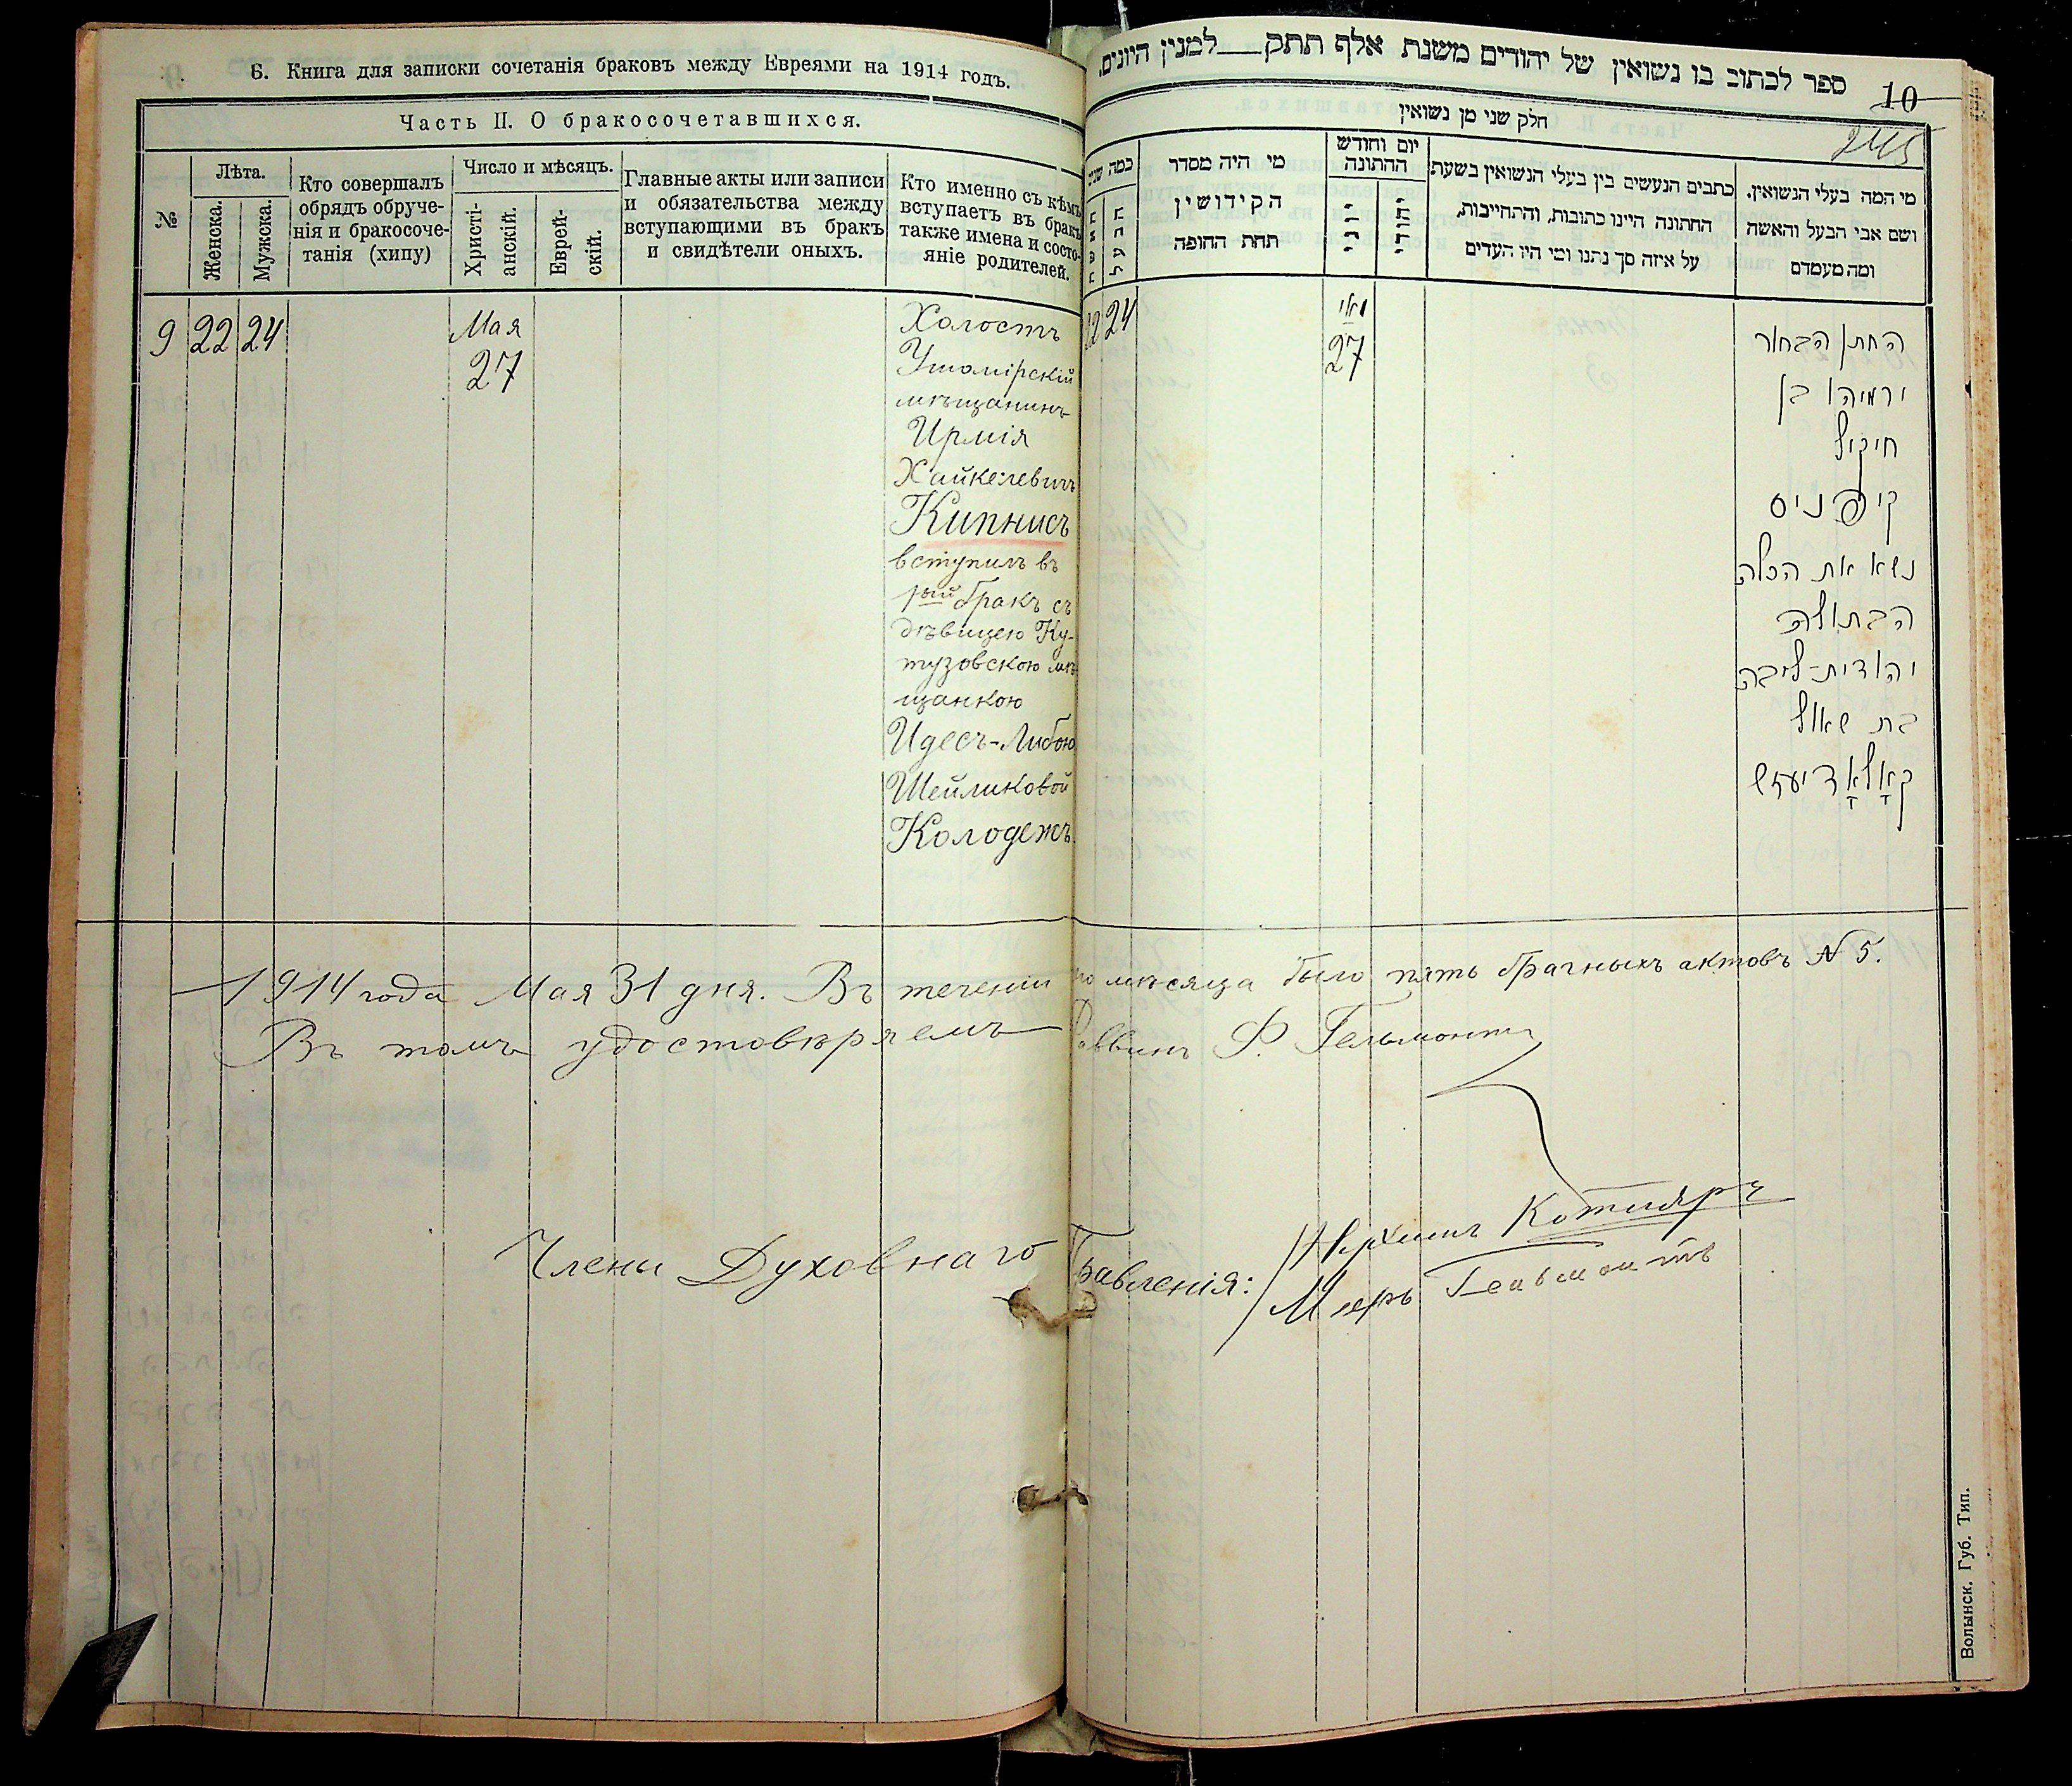 Б. Книга для записки сочетанія браковъ между Евреями на 1914 годъ.
Часть II. О бракосочетавшихся.
№
Лѣта.
Женска.
Мужска.
Кто совершалъ
обрядъ обруче-
нія и бракосоче-
танія (хипу)
Число и мѣсяцъ.
Христі-
анскій.
Еврей-
скій.
Главные акты или записи
и обязательства между
вступающими въ бракъ
и свидѣтели оныхъ.
Кто именно съ кѣмъ
вступаетъ въ бракъ
также имена и состо-
яніе родителей.
9 22 24
Мая
27
Холостъ
Ушомірскій
мѣщанинъ
Ирмія
Хайкелевичъ
Кипнисъ
вступилъ въ
1ый бракъ съ
дѣвицею Ку-
тузовскою мѣ-
щанкою
Идесъ-Либою
Шейликовой
Колодежъ.
ספר לכתוב בו נשואין של יהודים משנת אלף תתק למנין היונים.
10
245
חלק שני מן נשואין
כמה שנים
האשה
הבעל
מי היה מסדר
הקידושין
תחת החופה
יום וחודש
החתונה
יוני
יהודי
כתבים הנעשים בין בעלי הנשואין בשעת
החתונה היינו כתובות, והתחייבות,
על איזה סך נתנו ומי היו העדים
מי המה בעלי הנשואין.
ושם אבי הבעל והאשה
ומה מעמדם
22 24
מאי
27
החתן הבחור
ירמיהו בן
חיקיל
קיפניס
נשא את הכלה
הבתולה
יהודית-ליבה
בת שאול
קאָלאָדיעזש
1914 года Мая 31 дня. Въ теченіи го мѣсяца было пять брачныхъ актовъ № 5.
Въ томъ удостовѣряемъ Раввинъ Ф. Гельмонтъ
Члены Духовнаго Правленія:
Котляръ
Меръ Гельмонтъ
Волынск. Губ. Тип.